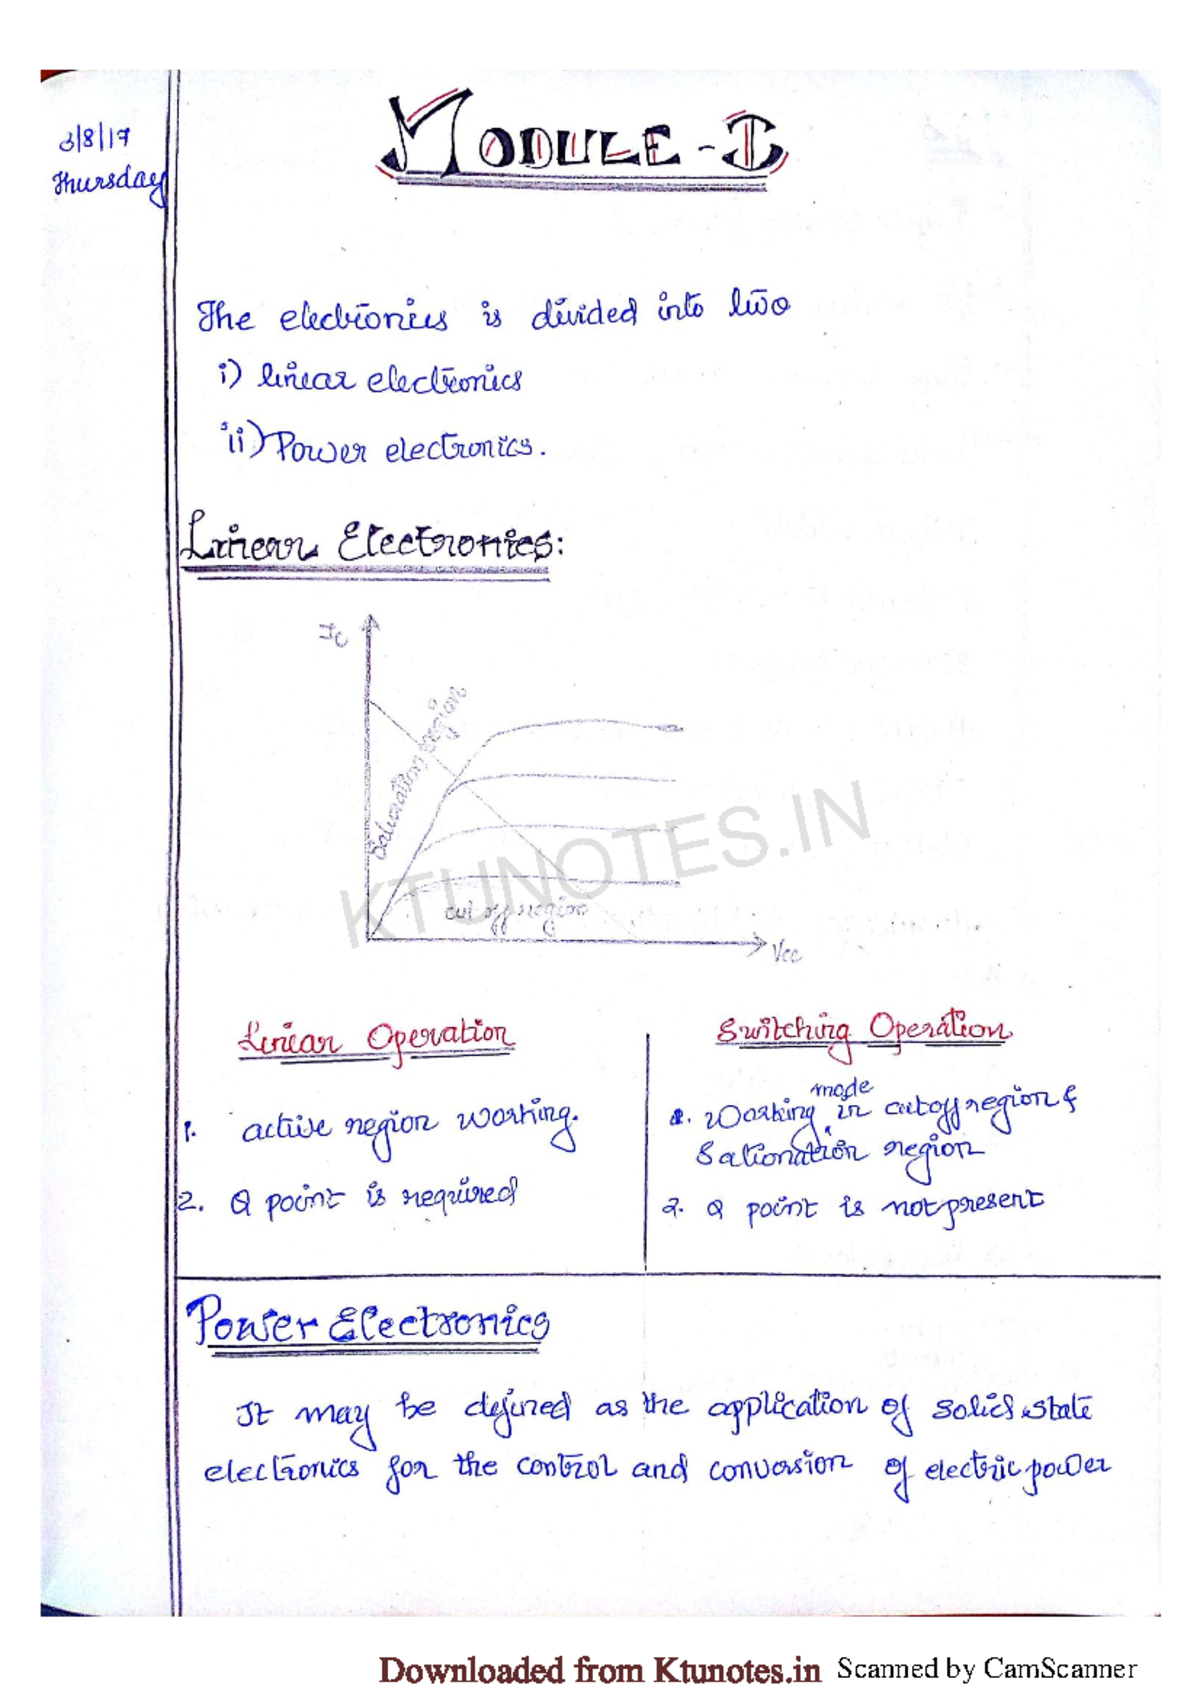 3/8/17
Thursday
MODULE - I
The electronics is divided into two
i) linear electronics
ii) Power electronics.
Linear Electronics:
Ic
Saturation region
cut off region
Vcc
KTUNOTES.IN
Linear Operation
1. active region working.
2. Q point is required
Switching Operation
1. Working mode in cutoff region &
Sationation region
2. Q point is not present
Power Electronics
It may be defined as the application of solid state
electronics for the control and conversion of electric power
Downloaded from Ktunotes.in
Scanned by CamScanner